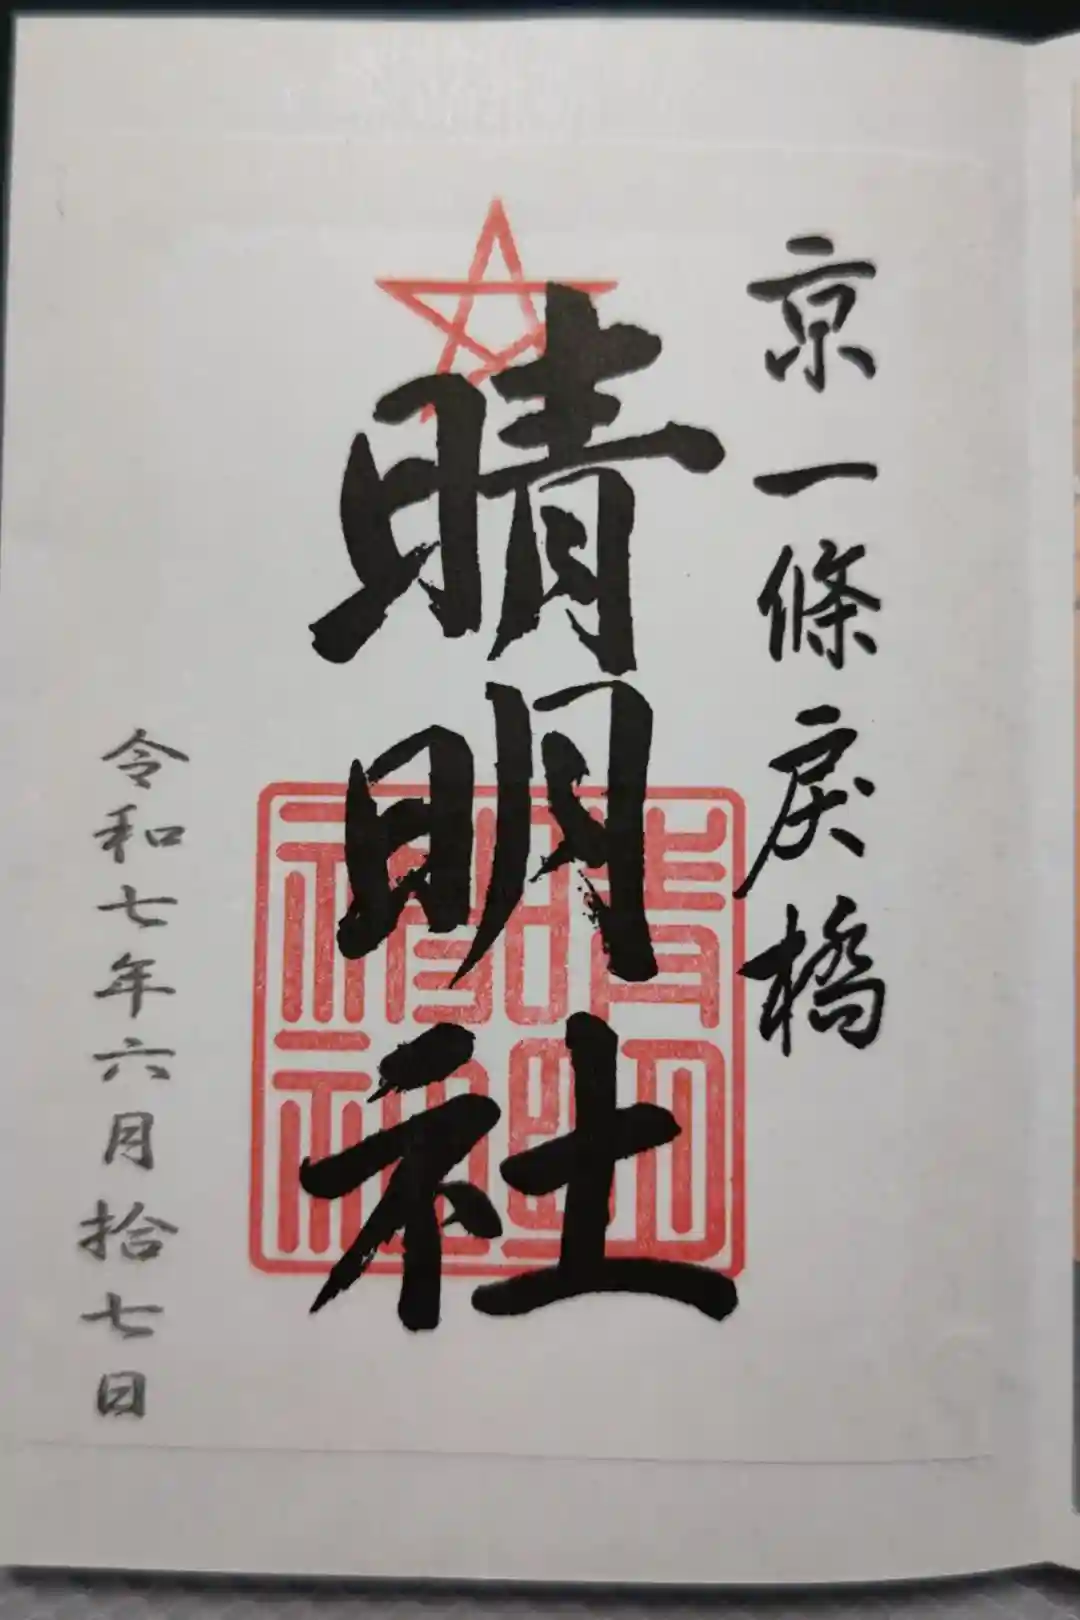 京一條戻橋
晴明社
晴明
神社
令和七年六月拾七日